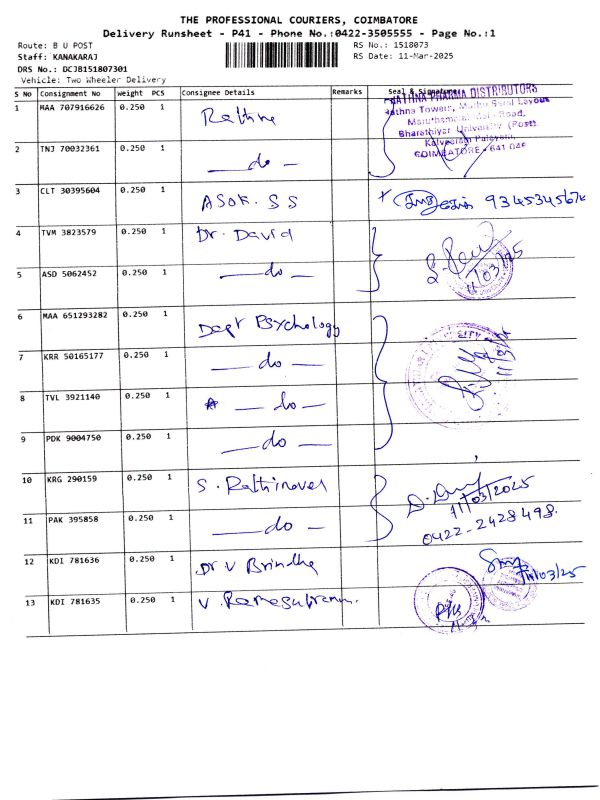 THE PROFESSIONAL COURIERS, COIMBATORE
Delivery Runsheet - P41 - Phone No.:0422-3505555 - Page No.:1
Route: B U POST
RS No.: 1518073
Staff: KANAKARAJ
RS Date: 11-Mar-2025
DRS No.: DCJB151807301
Vehicle: Two Wheeler Delivery
S No Consignment No Weight PCS Consignee Details Remarks Seal & Signature
1 MAA 707916626 0.250 1 Rathna
RATHNA PHARMA DISTRIBUTORS
Rathna Towers,
Road,
Bharathiyar University (Post),
COIMBATORE - 641 046
2 TNJ 70032361 0.250 1 — do —
3 CLT 30395604 0.250 1 ASOK. S S
4 TVM 3823579 0.250 1 Dr. David
11/03/25
5 ASD 5062452 0.250 1 — do —
6 MAA 651293282 0.250 1 Dept Psychology
7 KRR 50165177 0.250 1 — do —
8 TVL 3921140 0.250 1 — do —
9 PDK 9004750 0.250 1 — do —
10 KRG 290159 0.250 1 S.
11/03/2025
11 PAK 395858 0.250 1 — do —
0422-2428498.
12 KDI 781636 0.250 1 Dr V Brindha
11/03/25
13 KDI 781635 0.250 1 V.